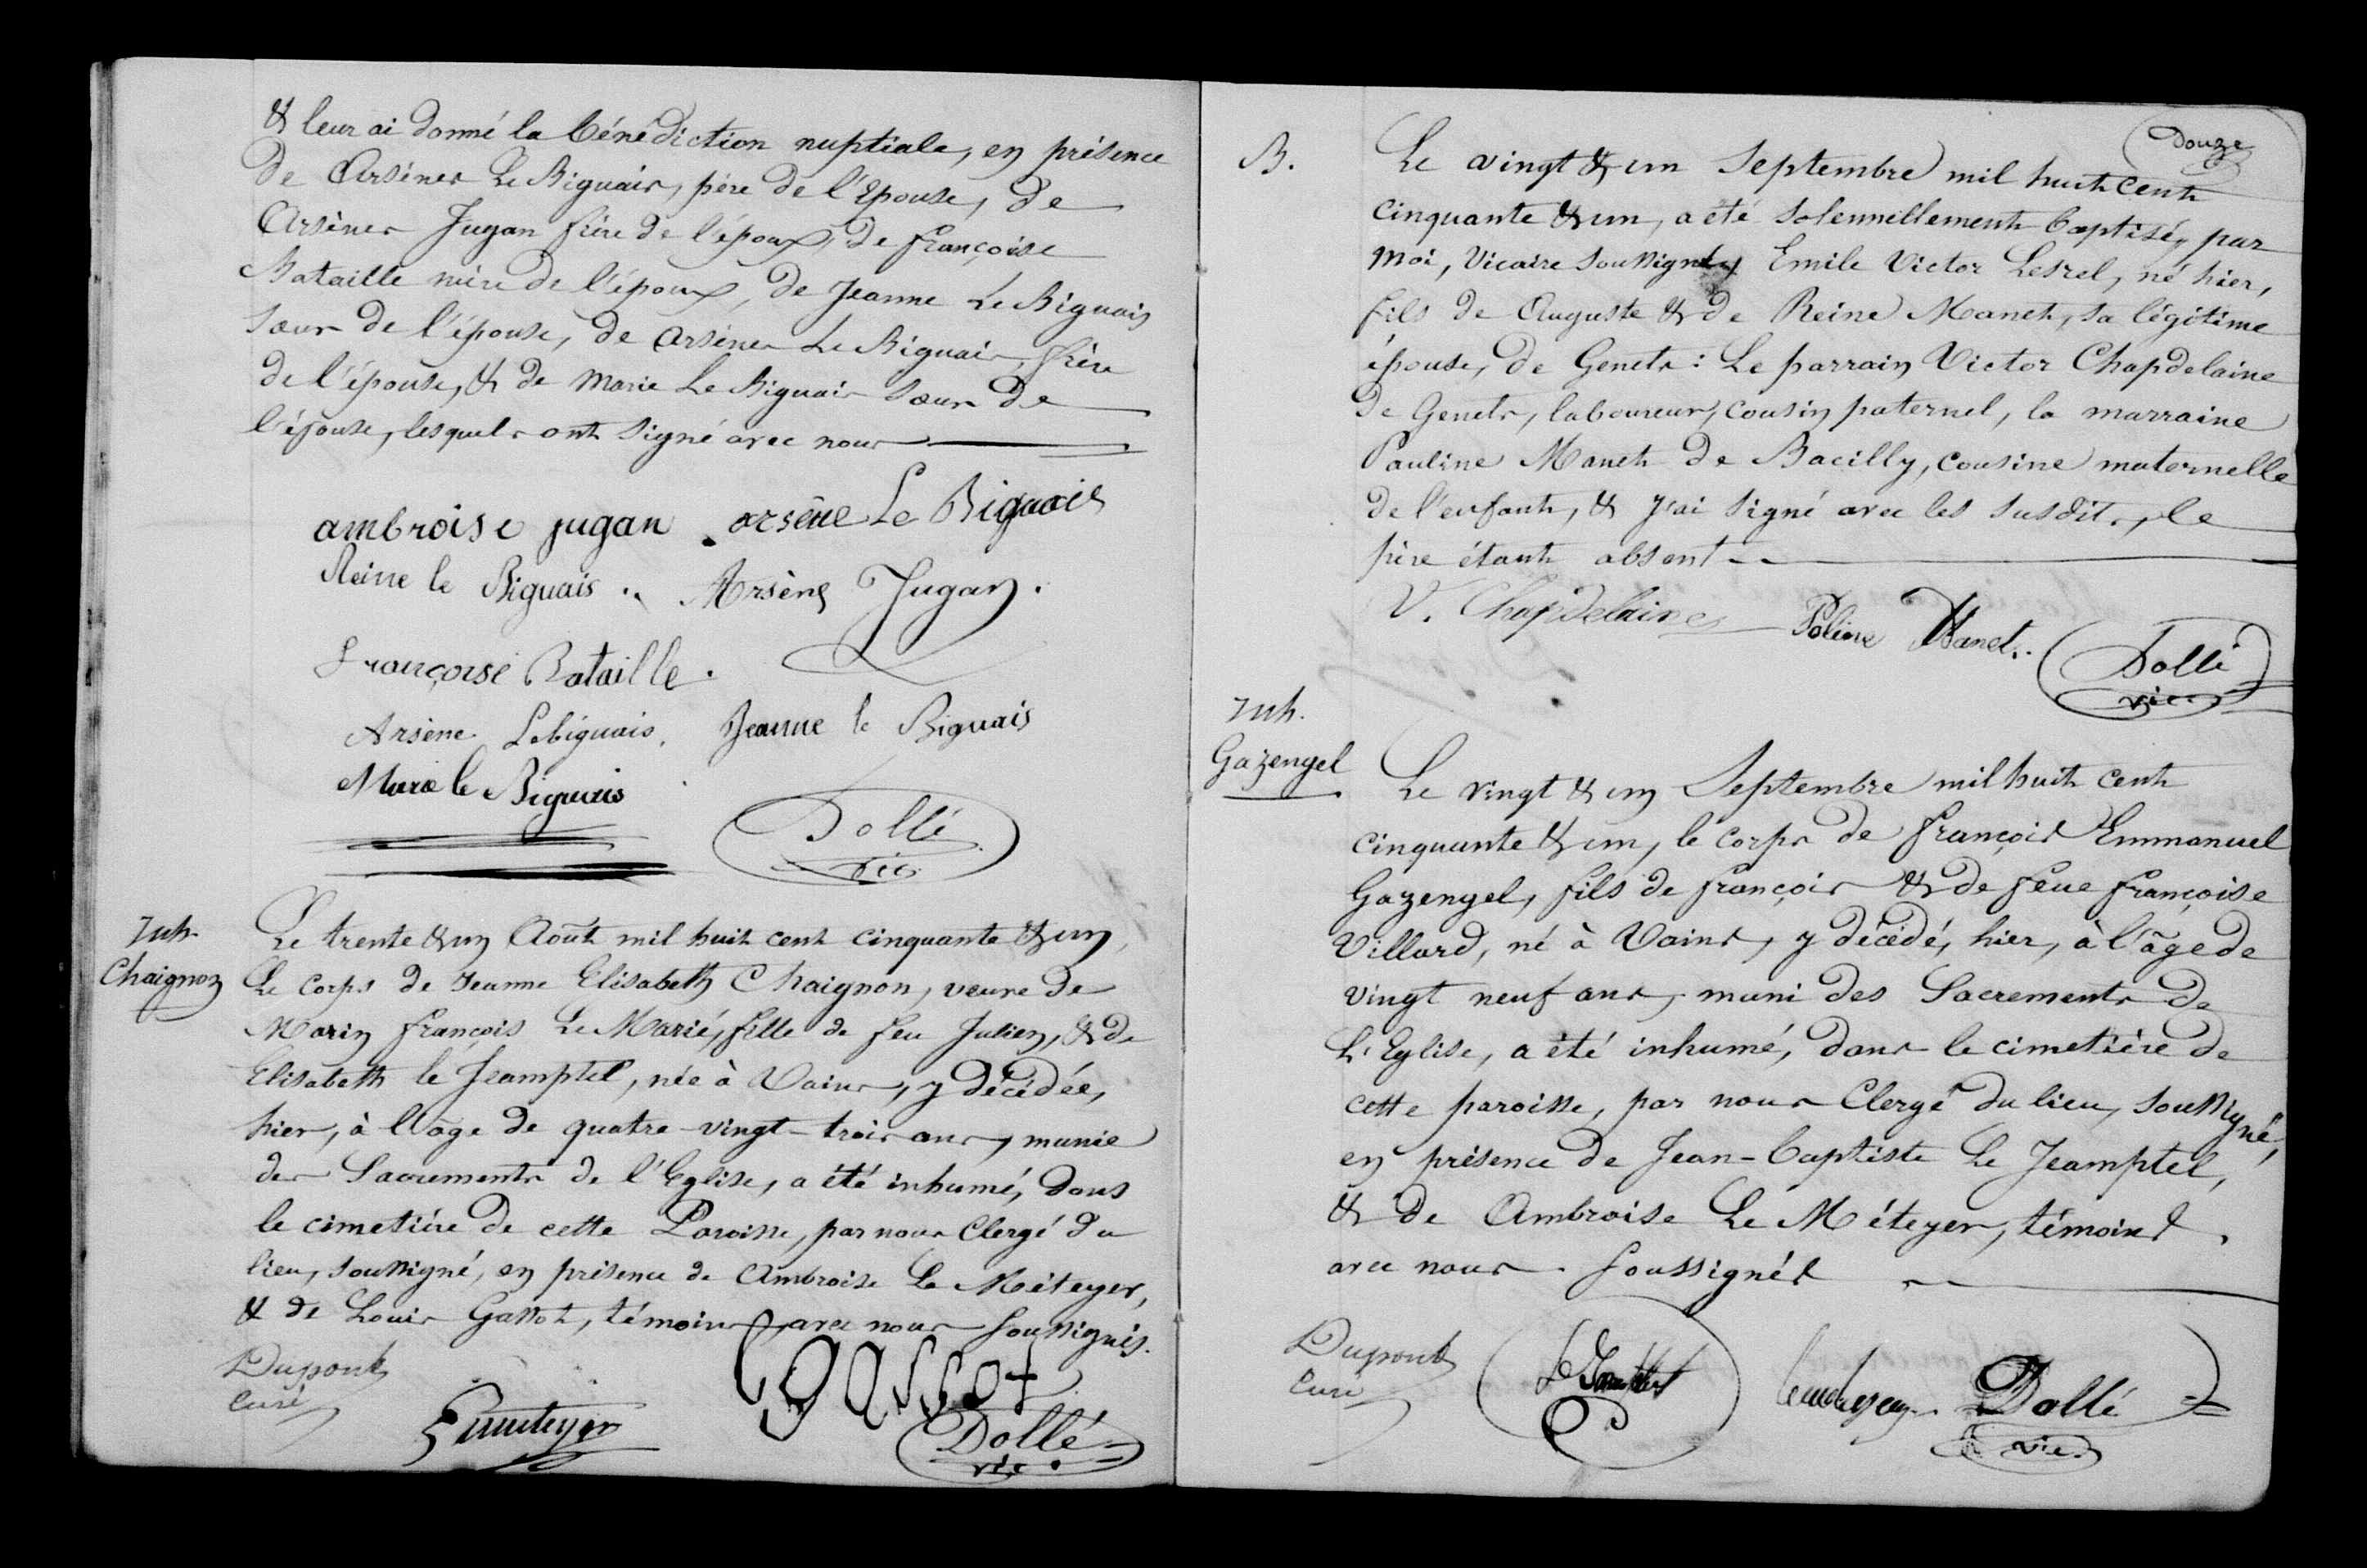 & leur ai donné la bénédiction nuptiale, en présence
de Arsène Le Biguais, père de l'Epouse, de
Arsène Jugan frère de l'époux, de françoise
Bataille mère de l'époux, de Jeanne Le Biguais
Sœur de l'épouse, de Arsène Le Biguais, frère
de l'épouse, & de Marie Le Biguais Sœur de
l'épouse, lesquels ont Signé avec nous
ambroise jugan . arsène Le Biguais
Reine le Biguais . Arsène Jugan .
Françoise Bataille .
Arsène Lebiguais . Jeanne le Biguais
Marie le Biguais
Dollé
vic.
Inh.
Chaignon
Le trente & un Août mil huit cent cinquante & un,
Le corps de Jeanne Elisabeth Chaignon, veuve de
Marin françois Le Marié, fille de feu Julien, & de
Elisabeth le Jeamptel, née à Vains, y décédée,
hier, à l'âge de quatre-vingt-trois ans, munie
des Sacrements de l'Eglise, a été inhumé, dans
le cimetière de cette Paroisse, par nous Clergé du
lieu, soussigné, en présence de Ambroise Le Méteyer,
& de Louis Gassot, témoins avec nous soussignés.
Dupont
Curé
gassot
Dollé
vic.
Douze
B.
Le vingt & un Septembre mil huit cent
cinquante & un, a été solennellement baptisé, par
moi, Vicaire soussigné, Emile Victor Lesrel, né hier,
fils de Auguste & de Reine Manet, sa légitime
épouse, de Genets : Le parrain Victor Chapdelaine
de Genets, laboureur, cousin paternel, la marraine
Pauline Manet de Bacilly, cousine maternelle
de l'enfant, & j'ai signé avec les susdits, le
père étant absent
V. Chapdelaine Poline Manet.
Dollé
vic.
Inh.
Gazengel
Le vingt & un Septembre mil huit cent
cinquante & un, le corps de françois Emmanuel
Gazengel, fils de françois & de feue françoise
Villard, né à Vains, y décédé, hier, à l'âge de
vingt neuf ans, muni des Sacrements de
L'Eglise, a été inhumé, dans le cimetière de
cette paroisse, par nous Clergé du lieu, soussigné,
en présence de Jean-baptiste Le Jeamptel,
& de Ambroise Le Méteyer, témoins
avec nous . soussignés
Dupont
Curé
Dollé
vic.